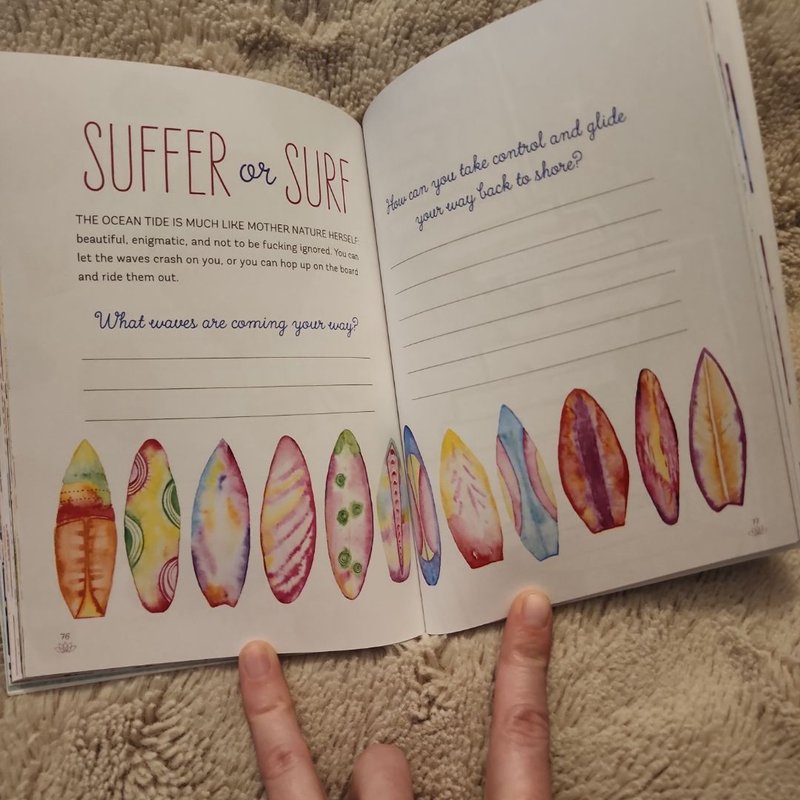 SUFFER or SURF
THE OCEAN TIDE IS MUCH LIKE MOTHER NATURE HERSELF
beautiful, enigmatic, and not to be fucking ignored. You can
let the waves crash on you, or you can hop up on the board
and ride them out.
What waves are coming your way?
76
How can you take control and glide
your way back to shore?
77